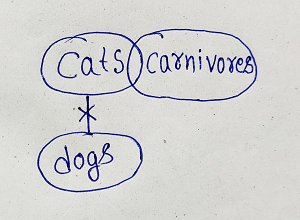 Cats Carnivores
dogs